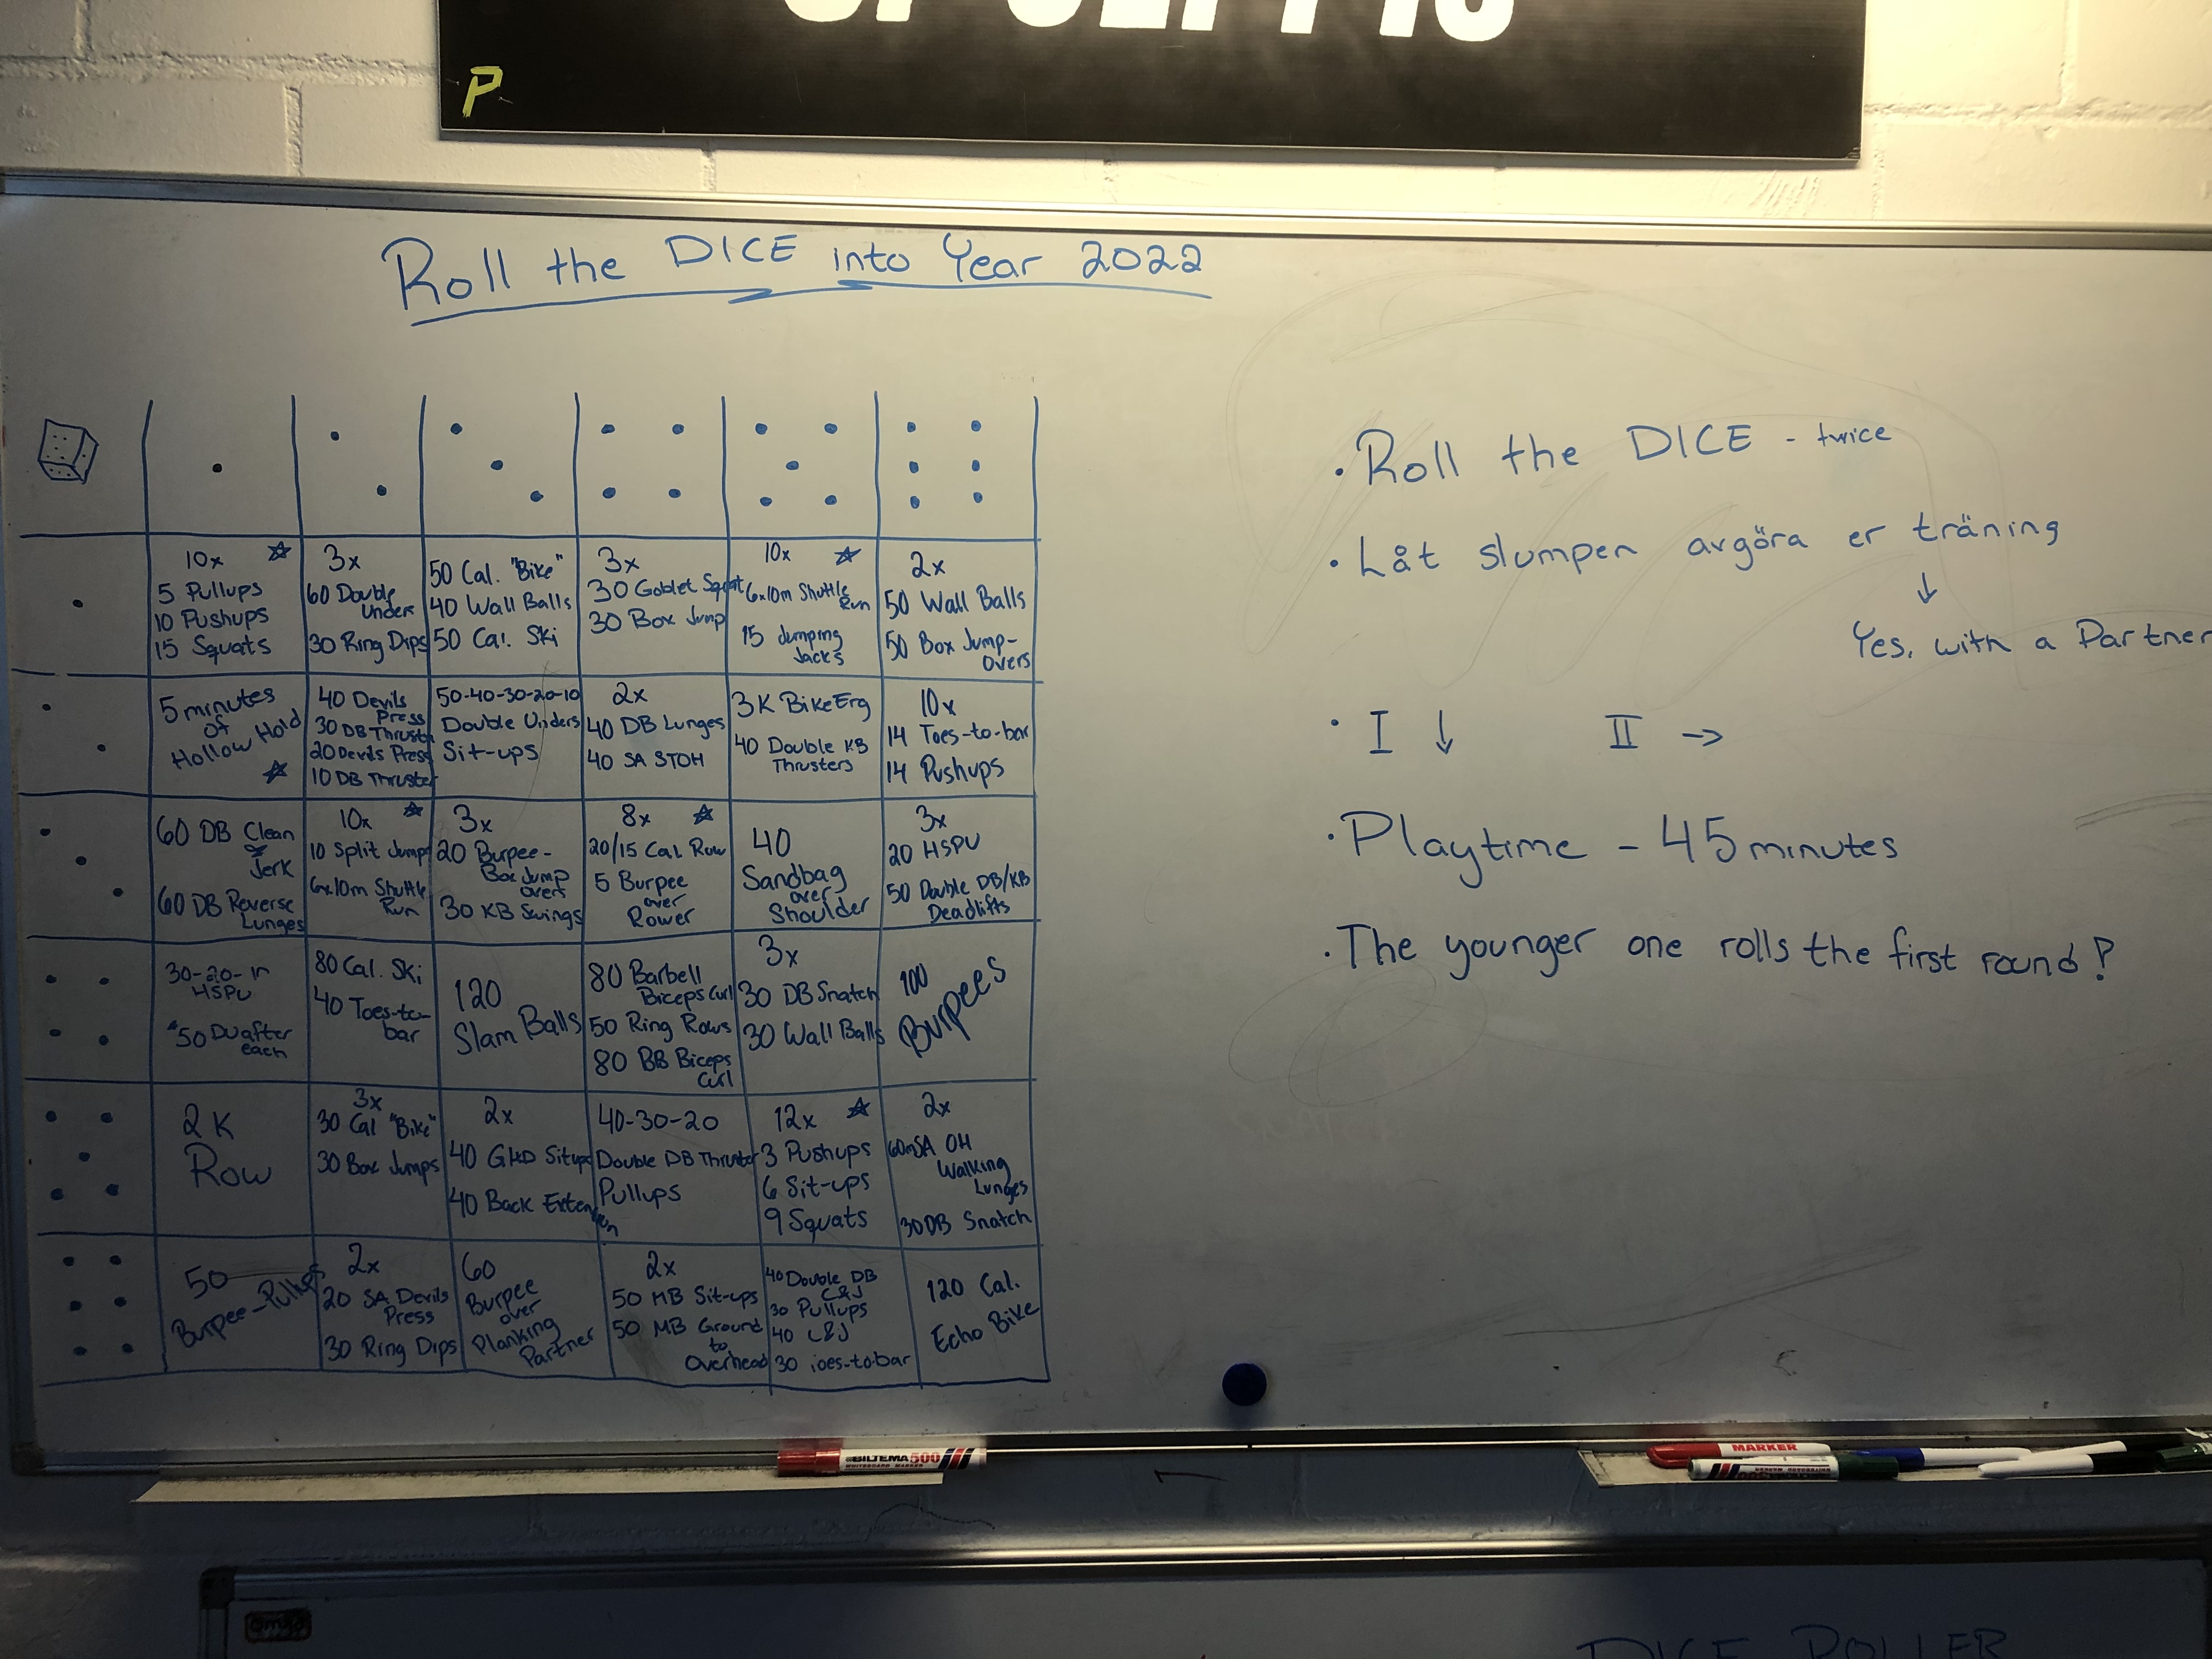 P
Roll the DICE into Year 2022
10x
5 Pullups
10 Pushups
15 Squats
3x
60 Double
Unders
30 Ring Dips
50 Cal. "Bike"
40 Wall Balls
50 Cal. Ski
3x
30 Goblet Squat
30 Box Jump
10x
6x10m Shuttle
Run
15 Jumping
Jacks
2x
50 Wall Balls
50 Box Jump-
Overs
5 minutes
of
Hollow Hold
40 Devils
Press
30 DB Thruster
20 Devils Press
10 DB Thruster
50-40-30-20-10
Double Unders
Sit-ups
2x
40 DB Lunges
40 SA STOH
3K BikeErg
40 Double KB
Thrusters
10x
14 Toes-to-bar
14 Pushups
60 DB Clean
&
Jerk
60 DB Reverse
Lunges
10x
10 Split Jump
6x10m Shuttle
Run
3x
20 Burpee-
Box Jump
overs
30 KB Swings
8x
20/15 Cal Row
5 Burpee
over
Rower
40
Sandbag
over
Shoulder
3x
20 HSPU
50 Double DB/KB
Deadlifts
30-20-10
HSPU
*50 DU after
each
80 Cal. Ski
40 Toes-to-
bar
120
Slam Balls
80 Barbell
Biceps Curl
50 Ring Rows
80 BB Biceps
Curl
3x
30 DB Snatch
30 Wall Balls
100
Burpees
2K
Row
3x
30 Cal "Bike"
30 Box Jumps
2x
40 GHD Situps
40 Back Extension
40-30-20
Double DB Thruster
Pullups
12x
3 Pushups
6 Sit-ups
9 Squats
2x
60m SA OH
Walking
Lunges
30 DB Snatch
50
Burpee-Pullups
2x
20 SA Devils
Press
30 Ring Dips
60
Burpee
over
Planking
Partner
2x
50 MB Sit-ups
50 MB Ground
to
Overhead
40 Double DB
C&J
30 Pullups
40 C&J
30 Toes-to-bar
120 Cal.
Echo Bike
• Roll the DICE - twice
• Låt slumpen avgöra er träning
↓
Yes, with a Partner
• I ↓ II →
• Playtime - 45 minutes
• The younger one rolls the first round?
BILTEMA 500
WHITEBOARD MARKER
MARKER
DICE ROLLER